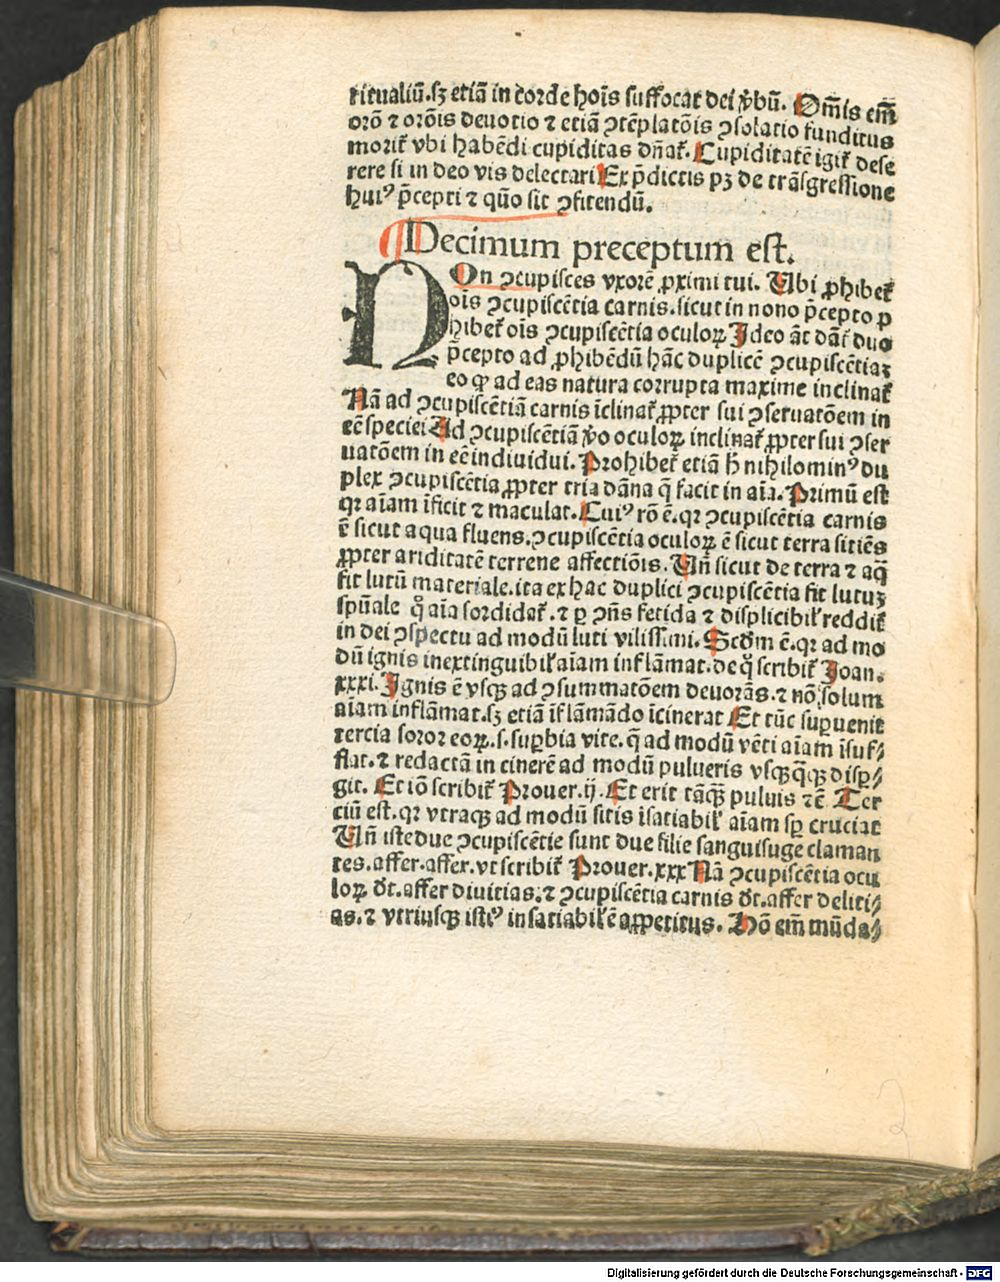 ritualiū.sʒ etiā in corde hoīs suffocat dei v̄bū. Om̄is em̄
orō ⁊ orōis deuotio ⁊ etiā ꝯtēplatōis ꝯsolatio funditus
morit᷑ vbi habēdi cupiditas dn̄at᷑. Cupiditatē igit᷑ dese
rere si in deo vis delectari Ex p̄dictis pʒ de trāsgressione
huiꝰ p̄cepti ⁊ quō sit ꝯfitendū.
¶ Decimum preceptum est.
NOn ꝯcupisces vxorē ꝓximi tui. Ubi ꝓhibet᷑
oīs ꝯcupiscētia carnis.sicut in nono p̄cepto p
hibet᷑ oīs ꝯcupiscētia oculoꝝ Ideo āt dāt᷑ duo
p̄cepto ad ꝓhibēdū hāc duplicē ꝯcupiscētiaʒ
eo ꝙ ad eas natura corrupta maxime inclinat᷑
Nā ad ꝯcupiscētiā carnis īclinat᷑ ꝓpter sui ꝯseruatōem in
eē speciei Ad ꝯcupiscētiā v̄o oculoꝝ inclinat᷑ ꝓpter sui ꝯser
uatōem in eē indiuidui. Prohibet᷑ etiā h̄ nihilominꝰ du
plex ꝯcupiscētia ꝓpter tria dāna q̄ facit in aīa. Primū est
qꝛ aīam īficit ⁊ maculat. Cuiꝰ rō ē.qꝛ ꝯcupiscētia carnis
ē sicut aqua fluens.ꝯcupiscētia oculoꝝ ē sicut terra sitiēs
ꝓpter ariditatē terrene affectiōis. Un̄ sicut de terra ⁊ aq̄
fit lutū materiale.ita ex hac duplici ꝯcupiscētia fit lutuʒ
spūale qͦ aīa sordidat᷑.⁊ ꝑ ꝯn̄s fetida ⁊ displicibil᷑ reddit᷑
in dei ꝯspectu ad modū luti vilissimi. Scd̄m ē.qꝛ ad mo
dū ignis inextinguibil᷑ aīam inflāmat.de qͦ scribit᷑ Joan.
xxxi. Ignis ē vsqꝫ ad ꝯsummatōem deuorās.⁊ nō solum
aīam inflāmat.sʒ etiā īflāmādo īcinerat Et tūc suꝑuenit
tercia soror eoꝝ.s.suꝑbia vite.q̄ ad modū vēti aīam īsuf⸗
flat.⁊ redactā in cinerē ad modū pulueris vsqꝫq̄qꝫ disꝑ⸗
git. Et iō scribit᷑ Prouer.ij. Et erit tāqꝫ puluis ⁊ē Ter
ciū est.qꝛ vtraqꝫ ad modū sitis īsatiabil᷑ aīam sꝑ cruciat
Un̄ iste due ꝯcupiscētie sunt due filie sanguisuge claman
tes.affer.affer.vt scribit᷑ Prouer.xxx Nā ꝯcupiscētia ocu
loꝝ d̄t.affer diuitias.⁊ ꝯcupiscētia carnis d̄t.affer deliti⸗
as.⁊ vtriusqꝫ istiꝰ insatiabil᷑ ē appetitus. Nō em̄ mūda⸗
Digitalisierung gefördert durch die Deutsche Forschungsgemeinschaft - DFG